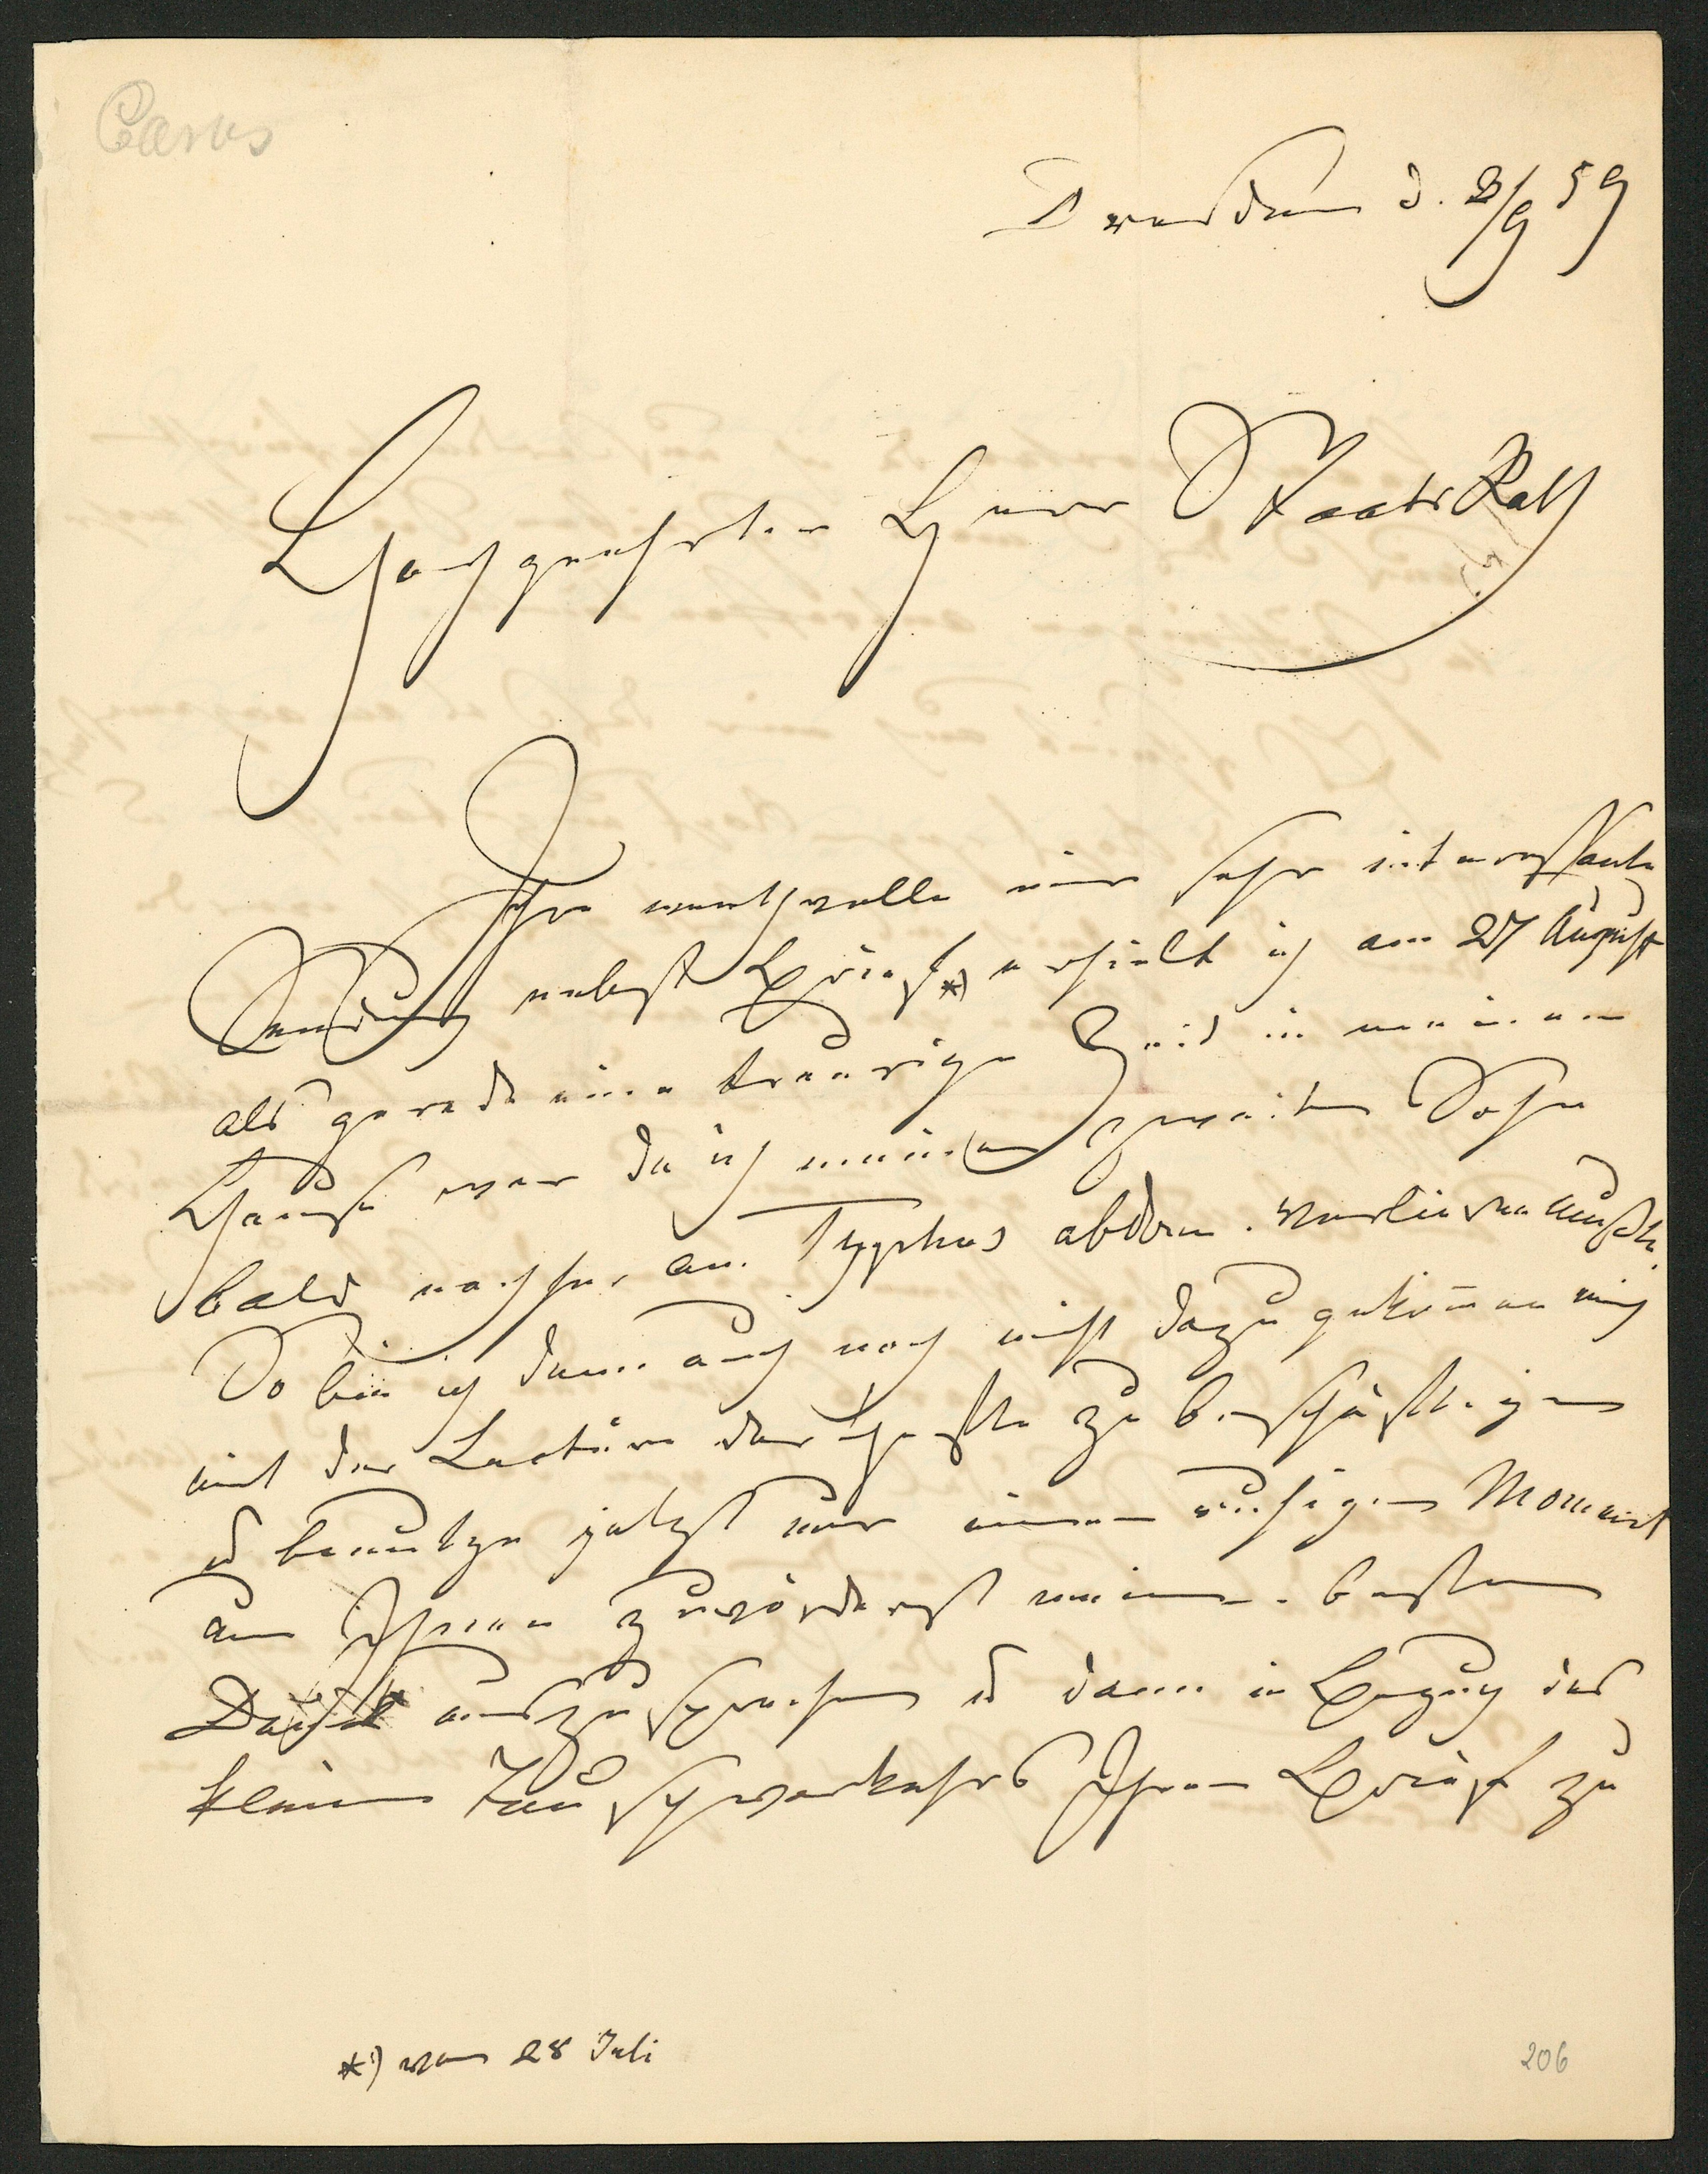 Carus
Dresden d. 2/9 59
Hochgeehrter Herr StaatsRath
Ihre werthvolle mir sehr interessante
Sendung nebst Brief *) erhielt ich am 27 August
als gerade eine traurige Zeit in meinem
Hause war da ich meinen zweiten Sohn
bald nachher an Typhus abdom. verlieren mußte.
So bin ich denn auch noch nicht dazu gekom̄en mich
mit der Lectüre der Hefte zu beschäftigen
u benutze jetzt nur einen ruhigen Moment
um Ihnen zuvörderst meinen besten
Dank auszusprechen u dann in Bezug des
kleinen Tauschverkehrs Ihren Brief zu
*) vom 28 Juli
206